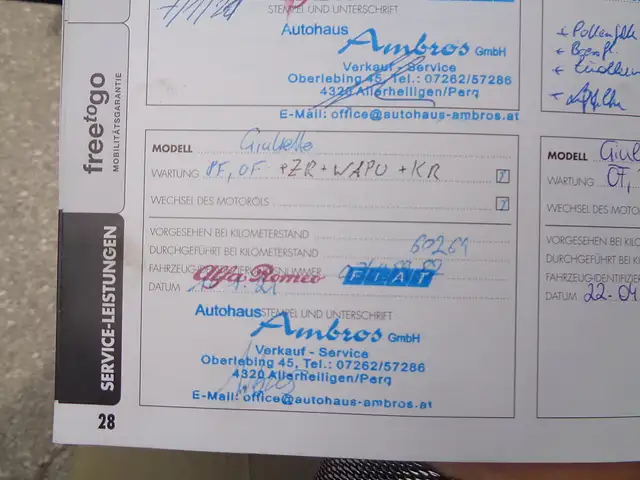 STEMPEL UND UNTERSCHRIFT
Autohaus
Ambros GmbH
Verkauf - Service
Oberlebing 45, Tel.: 07262/57286
4320 Allerheiligen/Perg
E-Mail: office@autohaus-ambros.at
freetogo
MOBILITÄTSGARANTIE
SERVICE-LEISTUNGEN
28
MODELL Giulietta
WARTUNG PF, OF +ZR+WAPU +KR
WECHSEL DES MOTORÖLS
VORGESEHEN BEI KILOMETERSTAND
DURCHGEFÜHRT BEI KILOMETERSTAND 60261
Alfa Romeo FIAT
DATUM
Autohaus STEMPEL UND UNTERSCHRIFT
Ambros GmbH
Verkauf - Service
Oberlebing 45, Tel.: 07262/57286
4320 Allerheiligen/Perg
E-Mail: office@autohaus-ambros.at
MODELL Giul
WARTUNG OF,
WECHSEL DES MOTORÖ
VORGESEHEN BEI KILOMETE
DURCHGEFÜHRT BEI KILOM
FAHRZEUGIDENTIFIZIER
DATUM 22-04